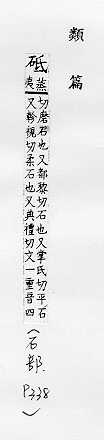 類篇
砥 蒸夷切磨石也又都黎切石也又掌氏切平石
又軫視切柔石也又典禮切文一重音四
(石部 P338)